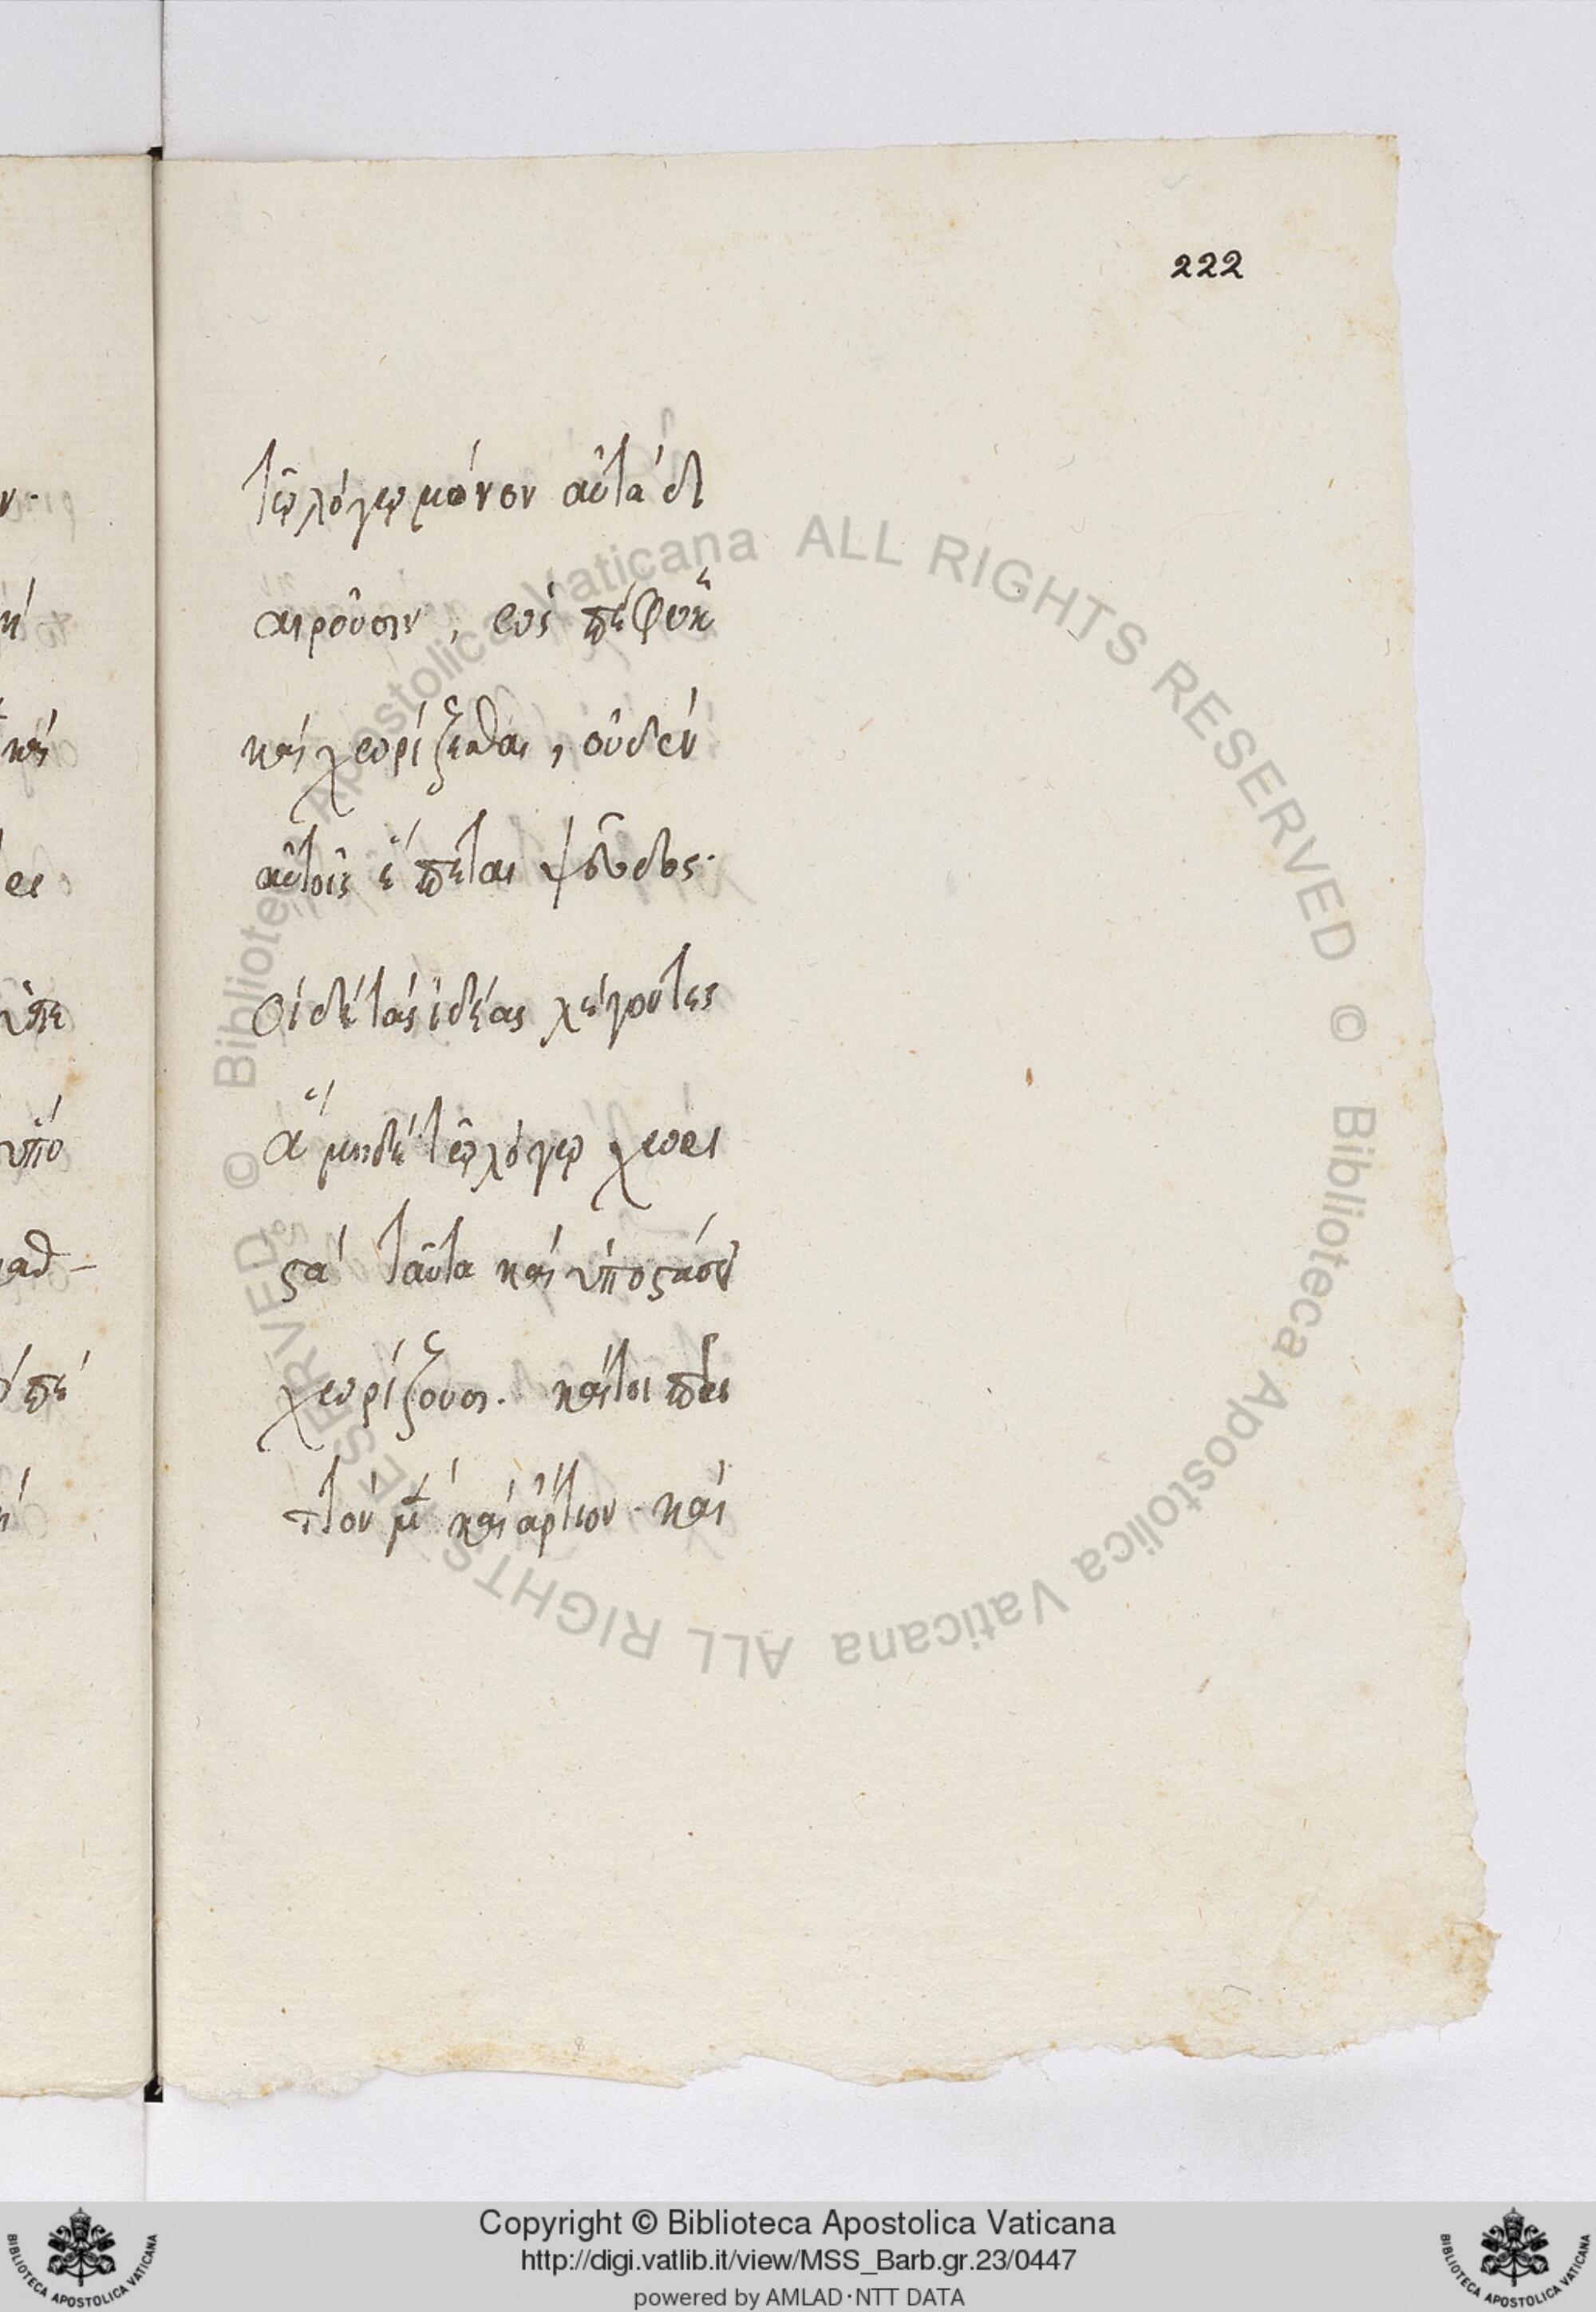 222
τῷ λόγῳ μόνον αὐτὰ δι
αιροῦσιν, ὡς πέφυκε
καὶ χωρίζεσθαι, οὐδὲν
αὐτοῖς ἕπεται ψεῦδος.
Οἱ δὲ τὰς ἰδέας λέγοντες
ἃ μηδὲ τῷ λόγῳ χωρι
στὰ ταῦτα καὶ ὑποστάσει
χωρίζουσι. καίτοι περι
τὸν μὲν καὶ ἄρτιον. καὶ
Copyright © Biblioteca Apostolica Vaticana
http://digi.vatlib.it/view/MSS_Barb.gr.23/0447
powered by AMLAD·NTT DATA
© Biblioteca Apostolica Vaticana ALL RIGHTS RESERVED © Biblioteca Apostolica Vaticana ALL RIGHTS RESERVED
BIBLIOTECA APOSTOLICA VATICANA
BIBLIOTECA APOSTOLICA VATICANA